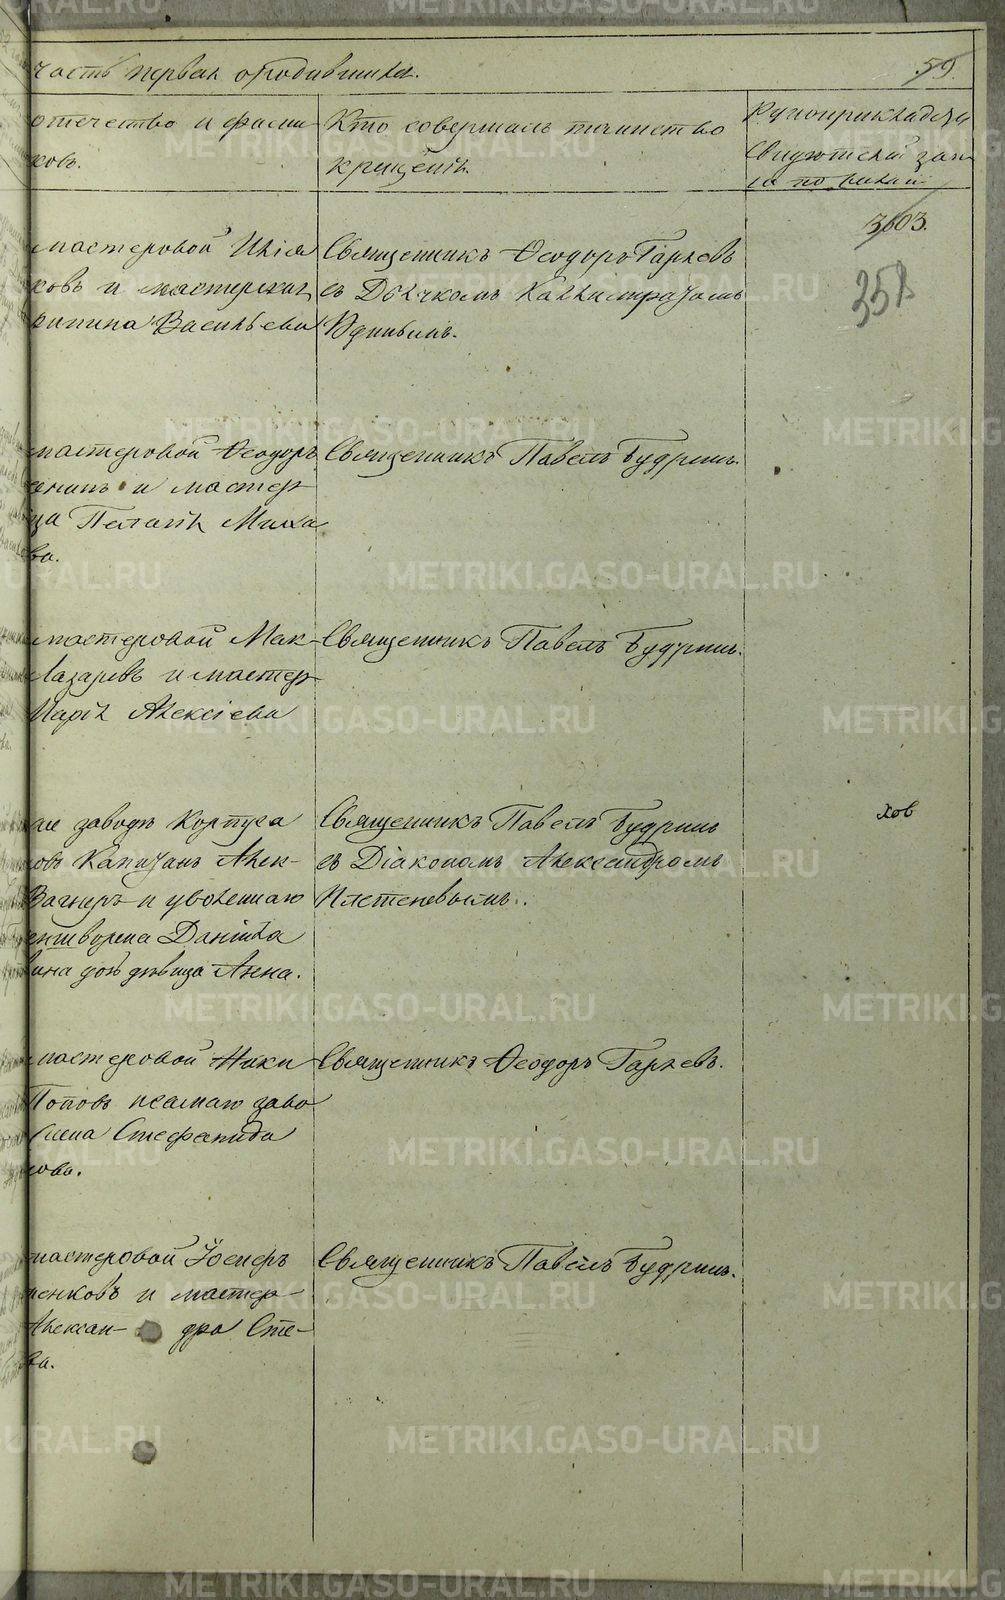 часть первая о родившихся.
59.
отчество и фами-
ковъ.
Кто совершалъ таинство
крещенія.
Рукоприкладств
свидѣтелей запи
си по желані
3603.
351
мастеровой Илія
ковъ и мастерская
Васильева
Священникъ Ѳеодоръ Гаряевъ
съ Дьячкомъ Каллистратомъ
Удинымъ.
мастеровой Ѳеодоръ
и мастер-
ца Пелагія Миха
ва.
Священникъ Павелъ Будринъ.
мастеровой Мак-
Лазаревъ и мастер-
Марія Алексіева
Священникъ Павелъ Будринъ.
заводъ Корпуса
ровъ Капитанъ Алек-
Вагнеръ и уволеннаго
Даніила
дочь дѣвица Анна.
Священникъ Павелъ Будринъ
съ Діакономъ Александромъ
Плетеневымъ.
хов
мастеровой Ники
Поповъ заво
жена Стефанида
ова.
Священникъ Ѳеодоръ Гаряевъ.
мастеровой
енковъ и мастер-
Алексан- дра Сте-
ва.
Священникъ Павелъ Будринъ.
METRIKI.GASO-URAL.RU